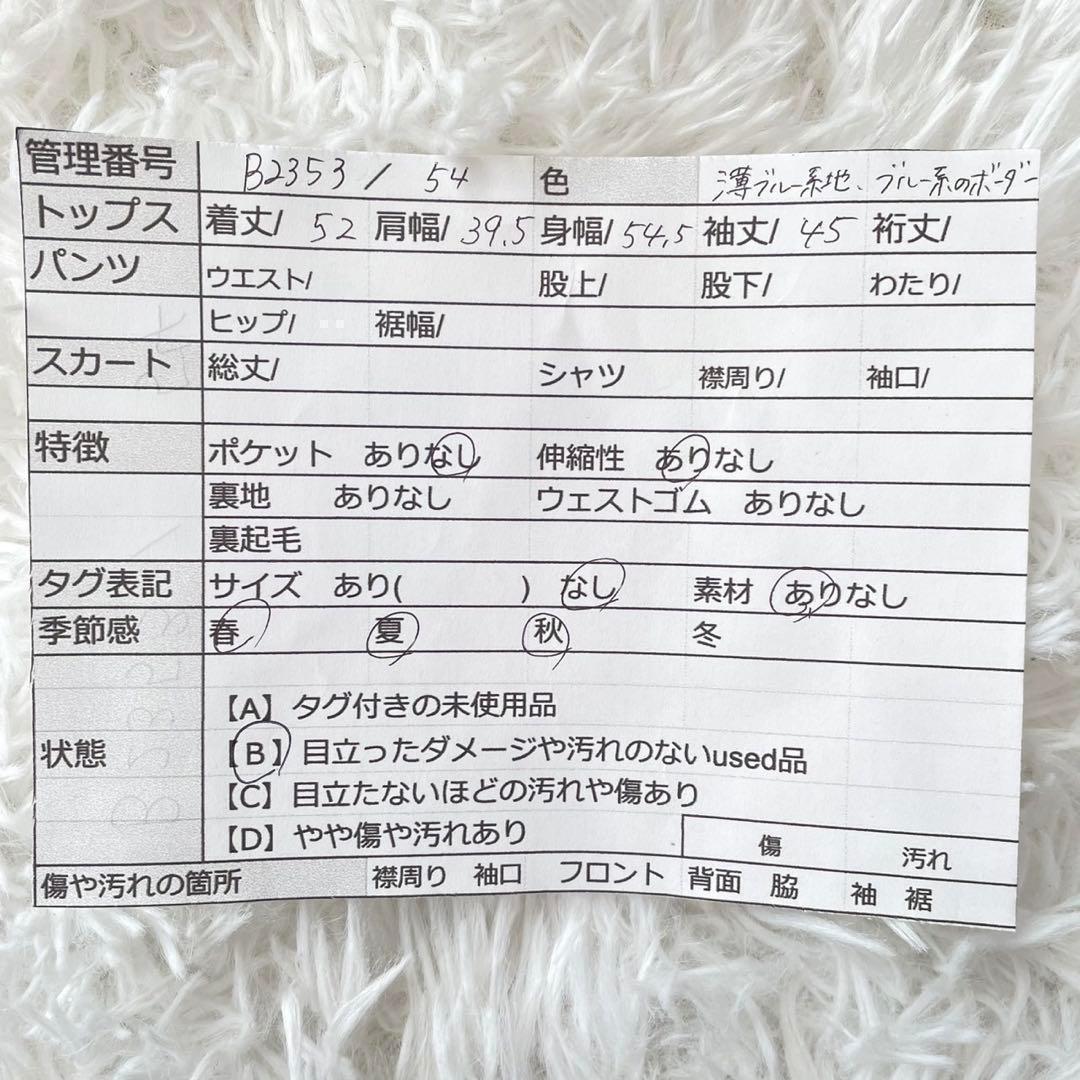 管理番号 B2353 / 54 色 薄ブルー系地、ブルー系のボーダー
トップス 着丈/ 52 肩幅/ 39.5 身幅/ 54.5 袖丈/ 45 裄丈/
パンツ ウエスト/ 股上/ 股下/ わたり/
ヒップ/ 裾幅/
スカート 総丈/ シャツ 襟周り/ 袖口/
特徴 ポケット ありなし 伸縮性 ありなし
裏地 ありなし ウェストゴム ありなし
裏起毛
タグ表記 サイズ あり( ) なし 素材 ありなし
季節感 春 夏 秋 冬
【A】タグ付きの未使用品
状態 【B】目立ったダメージや汚れのないused品
【C】目立たないほどの汚れや傷あり
【D】やや傷や汚れあり 傷 汚れ
傷や汚れの箇所 襟周り 袖口 フロント 背面 脇 袖 裾